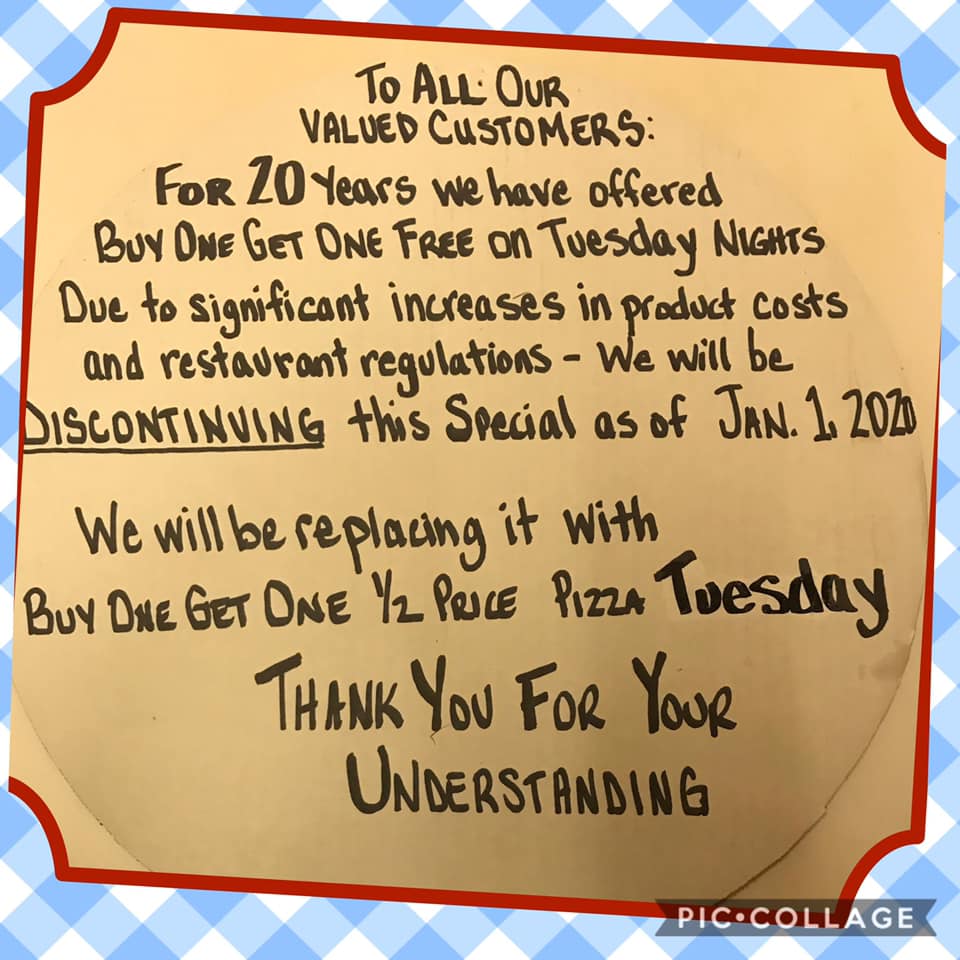 To ALL OUR
VALUED CUSTOMERS:
FOR 20 Years we have offered
BUY ONE GET ONE FREE on Tuesday NIGHTS
Due to significant increases in product costs
and restaurant regulations - We will be
DISCONTINUING this Special as of JAN. 1, 2020
We will be replacing it with
BUY ONE GET ONE 1/2 PRICE PIZZA Tuesday
THANK YOU FOR YOUR
UNDERSTANDING
PIC•COLLAGE